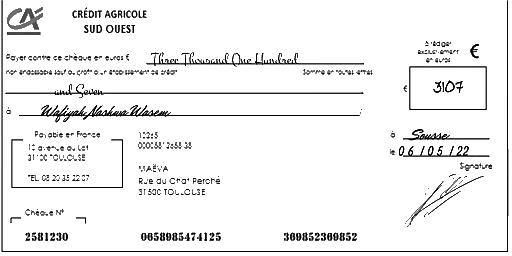 CA CRÉDIT AGRICOLE
SUD OUEST
Payer contre ce chèque en euros € Three Thousand One Hundred
non endossable sauf au profit d'un établissement de crédit Somme en toutes lettres
and Seven
à rédiger
exclusivement
en euros €
€ 3107
à Wafiyah Nashwa Wasem
Payable en France
10 avenue du Lot
31100 TOULOUSE
TEL. 08 20 35 22 07
10265
00008812688 38
MAËVA
Rue du Chat Perché
31500 TOULOUSE
à Sousse
le 06/05/22
Signature
Chèque N°
2581230 0658985474125 369852369852